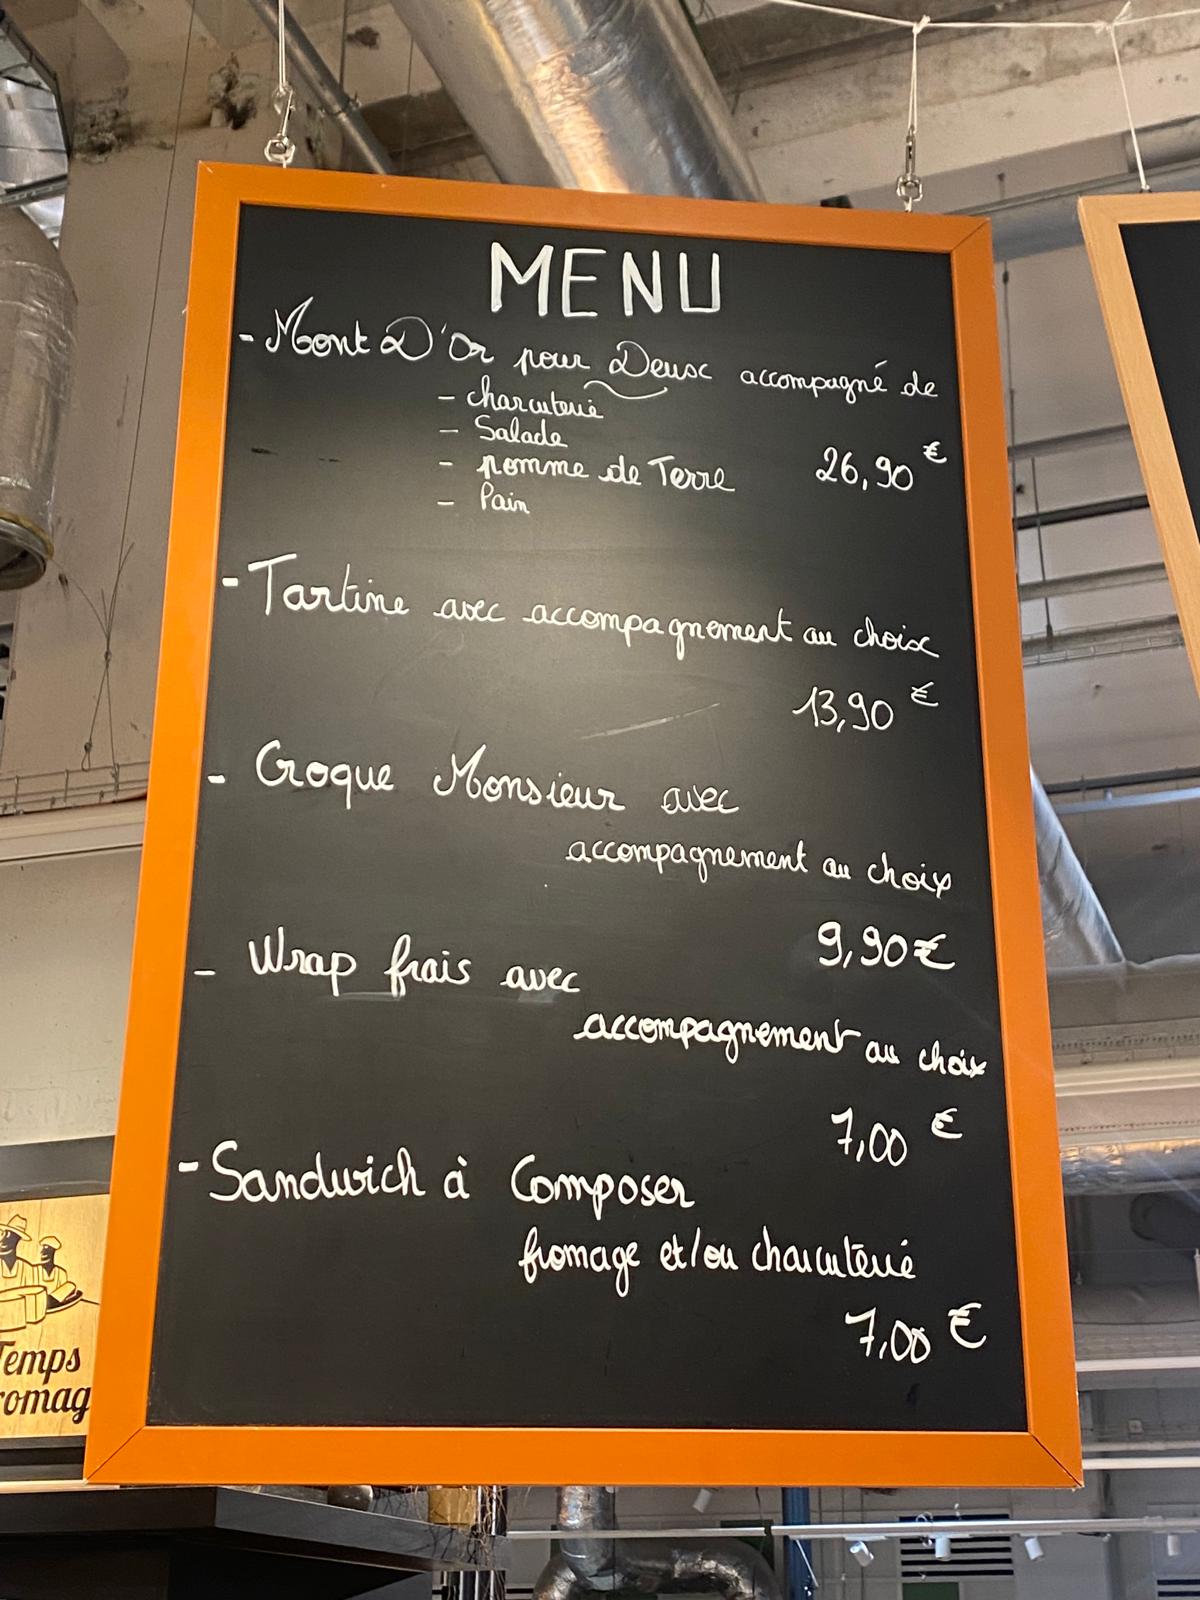 MENU
- Mont D'Or pour Deux accompagné de
- charcuterie
- Salade
- pomme de Terre
26,90 €
- Pain
- Tartine avec accompagnement au choix
13,90 €
- Croque Monsieur avec
accompagnement au choix
9,90 €
- Wrap frais avec
accompagnement au choix
7,00 €
- Sandwich à Composer
fromage et/ou charcuterie
7,00 €
Temps
romag